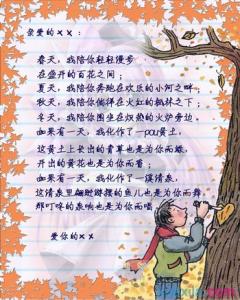 亲爱的××：
春天，我陪你轻轻漫步
在盛开的百花之间；
夏天，我陪你奔跑在欢乐的小河之畔；
秋天，我陪你徜徉在火红的枫林之下；
冬天，我陪你围坐在炽热的火炉旁边。
如果有一天，我化作了一pou黄土，
这黄土上长出的青草也是为你而绿，
开出的黄花也是为你而香；
如果有一天，我化作了一溪清泉，
这清泉里翩跹游摆的鱼儿也是为你而舞，
那叮咚的泉响也是为你而唱。
爱你的××